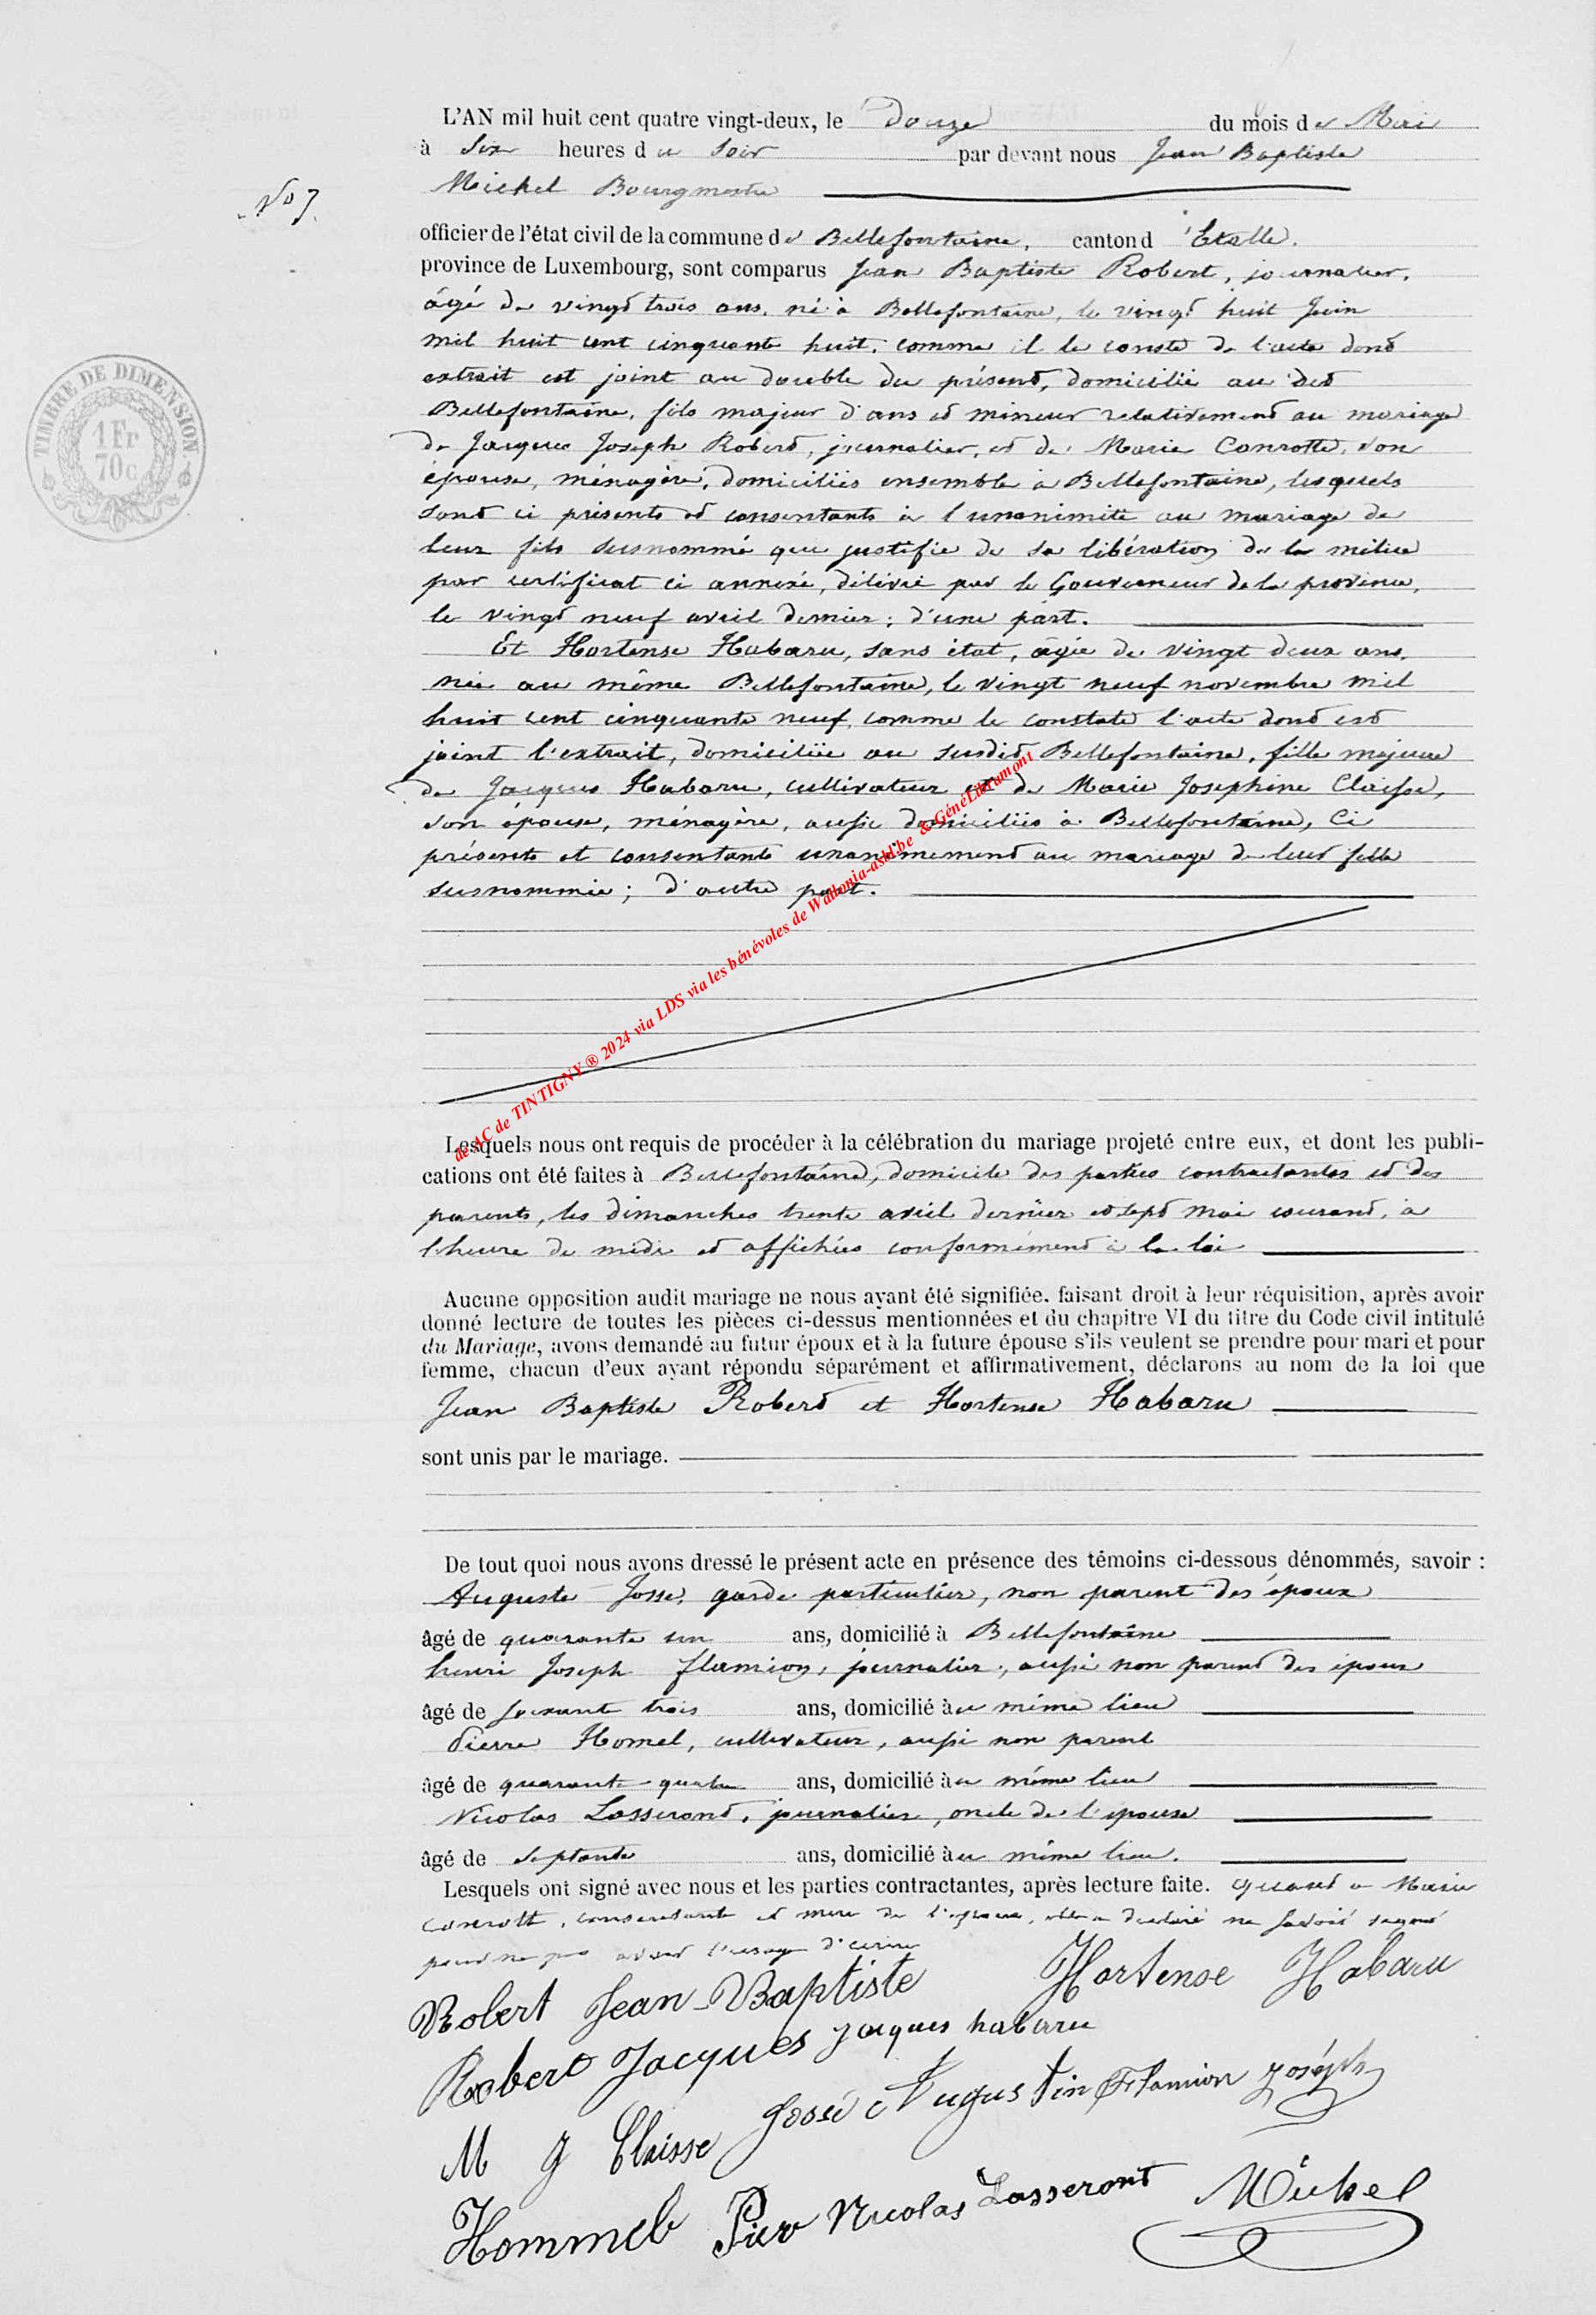 L'AN mil huit cent quatre vingt-deux, le douze du mois de Mai
à six heures du soir par devant nous Jean Baptiste
Michel Bourgmestre
No 7.
officier de l'état civil de la commune de Bellefontaine, canton d'Etalle.
province de Luxembourg, sont comparus Jean Baptiste Robert, journalier,
âgé de vingt trois ans, né à Bellefontaine, le vingt huit Juin
mil huit cent cinquante huit, comme il le conste de l'acte dont
extrait est joint au double du présent, domicilié au dit
Bellefontaine, fils majeur d'ans et mineur relativement au mariage
de Jacques Joseph Robert, journalier, et de Marie Conrotte, son
épouse, ménagère, domiciliés ensemble à Bellefontaine, lesquels
sont ci présents et consentants à l'unanimité au mariage de
leur fils susnommé qui justifie de sa libération de la milice
par certificat ci annexé, délivré par le Gouverneur de la province,
le vingt neuf avril dernier ; d'une part.
Et Hortense Habaru, sans état, âgée de vingt deux ans,
née au même Bellefontaine, le vingt neuf novembre mil
huit cent cinquante neuf, comme le constate l'acte dont est
joint l'extrait, domiciliée au susdit Bellefontaine, fille majeure
de Jacques Habaru, cultivateur et de Marie Josephine Claisse,
son épouse, ménagère, aussi domiciliés à Bellefontaine, ci
présents et consentants unanimement au mariage de leur fille
susnommée ; d'autre part.
de AC de TINTIGNY ® 2024 via LDS via les bénévoles de Wallonia-asbl.be & GénéLibramont
Lesquels nous ont requis de procéder à la célébration du mariage projeté entre eux, et dont les publi-
cations ont été faites à Bellefontaine, domicile des parties contractantes et des
parents, les dimanches trente avril dernier et sept mai courant, à
l'heure de midi et affichées conformément à la loi
Aucune opposition audit mariage ne nous ayant été signifiée. faisant droit à leur réquisition, après avoir
donné lecture de toutes les pièces ci-dessus mentionnées et du chapitre VI du titre du Code civil intitulé
du Mariage, avons demandé au futur époux et à la future épouse s'ils veulent se prendre pour mari et pour
femme, chacun d'eux ayant répondu séparément et affirmativement, déclarons au nom de la loi que
Jean Baptiste Robert et Hortense Habaru
sont unis par le mariage.
De tout quoi nous avons dressé le présent acte en présence des témoins ci-dessous dénommés, savoir :
Auguste Josse, garde particulier, non parent des époux
âgé de quarante un ans, domicilié à Bellefontaine
henri Joseph flamion, journalier, aussi non parent des époux
âgé de soixante trois ans, domicilié au même lieu
Pierre Homel, cultivateur, aussi non parent
âgé de quarante-quatre ans, domicilié au même lieu
Nicolas Lasseront, journalier, oncle de l'épouse
âgé de septante ans, domicilié au même lieu.
Lesquels ont signé avec nous et les parties contractantes, après lecture faite. quant à Marie
Conrotte, consentante et mère de l'époux, elle a déclaré ne savoir signer
pour ne pas avoir l'usage d'écrire
Robert Jean-Baptiste Hortense Habaru
Robert Jacques Jaques habaru
M J Claisse Jossé Augustin Flamion Joséph
Hommel Pier Nicolas Lasseront Michel
TIMBRE DE DIMENSION
1 Fr
70c